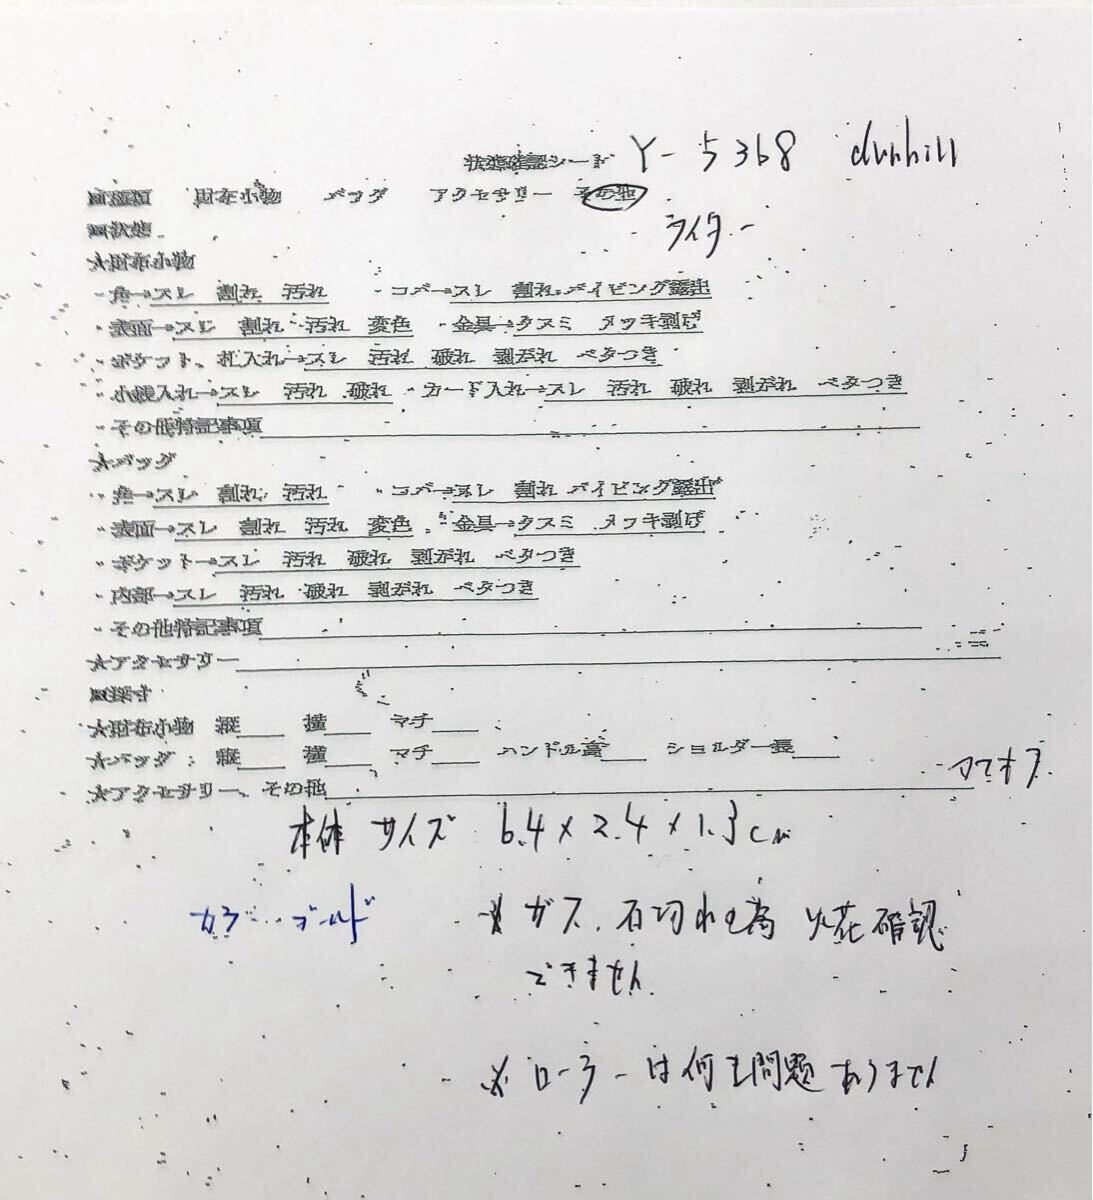 状態確認シート Y-5368 dunhill
■種類 財布小物 バッグ アクセサリー その他
ライター
■状態
★財布小物
・角→スレ 割れ 汚れ ・コバ→スレ 割れ パイピング露出
・表面→スレ 割れ 汚れ 変色 ・金具→クスミ メッキ剥げ
・ポケット、札入れ→スレ 汚れ 破れ 剥がれ ベタつき
・小銭入れ→スレ 汚れ 破れ ・カード入れ→スレ 汚れ 破れ 剥がれ ベタつき
・その他特記事項
★バッグ
・角→スレ 割れ 汚れ ・コバ→スレ 割れ パイピング露出
・表面→スレ 割れ 汚れ 変色 ・金具→クスミ メッキ剥げ
・ポケット→スレ 汚れ 破れ 剥がれ ベタつき
・内部→スレ 汚れ 破れ 剥がれ ベタつき
・その他特記事項
★アクセサリー
■採寸
★財布小物 縦 横 マチ
★バッグ:縦 横 マチ ハンドル高 ショルダー長
★アクセサリー、その他
本体サイズ 6.4×2.4×1.3cm
カラー ゴールド ※ガス、石切れの為 火花確認
できません
※ローラーは何も問題ありません